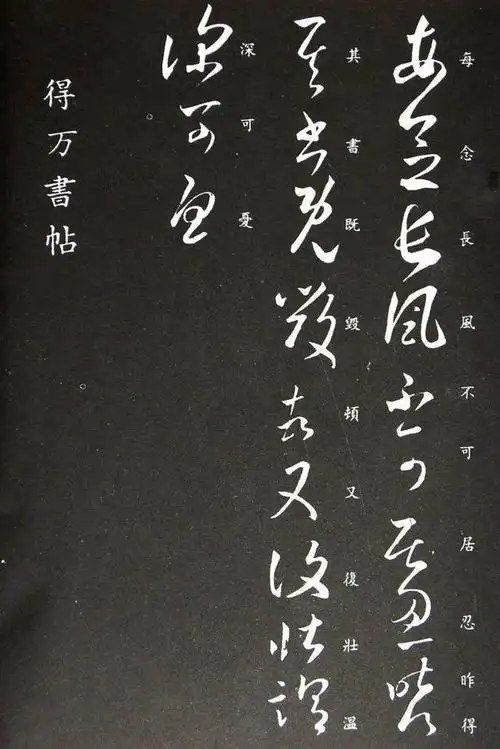 每念長風不可居忍昨得
其書既毀頓又復壯溫
深可憂
得万書帖